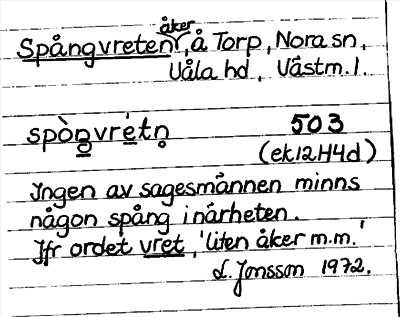 åker
Spångvreten, å Torp, Nora sn,
Våla hd, Västm. l.
spòŋvrétn̥ 503
(ek12H4d)
Ingen av sagesmännen minns
någon spång i närheten.
Jfr ordet vret, 'liten åker m.m.'
L. Jonsson 1972.